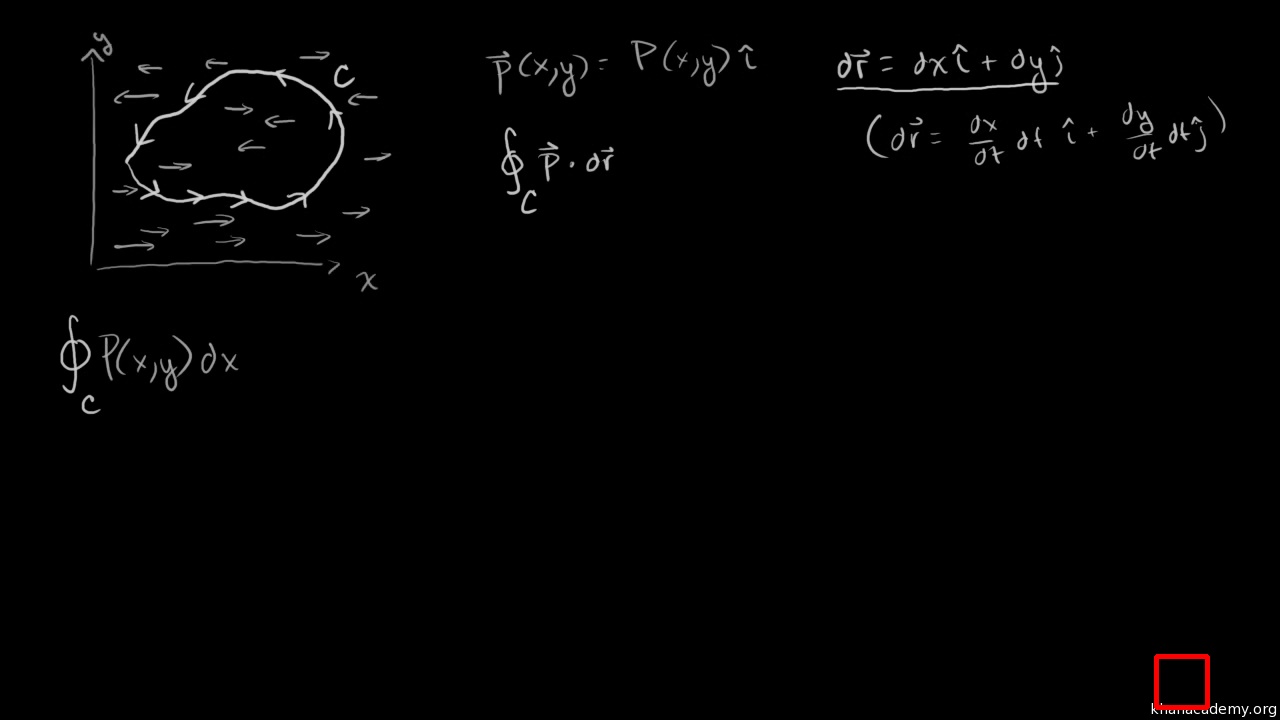 y
C
x
p⃗(x,y) = P(x,y) î
∮_C p⃗ · dr⃗
dr⃗ = dx î + dy ĵ
(dr⃗ = dx/dt dt î + dy/dt dt ĵ)
∮_C P(x,y) dx
khanacademy.org